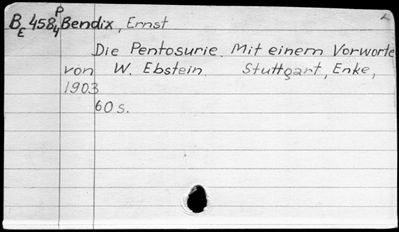 BE 4584P Bendix, Ernst
Die Pentosurie. Mit einem Vorworte
von W. Ebstein. Stuttgart, Enke,
1903
60 s.